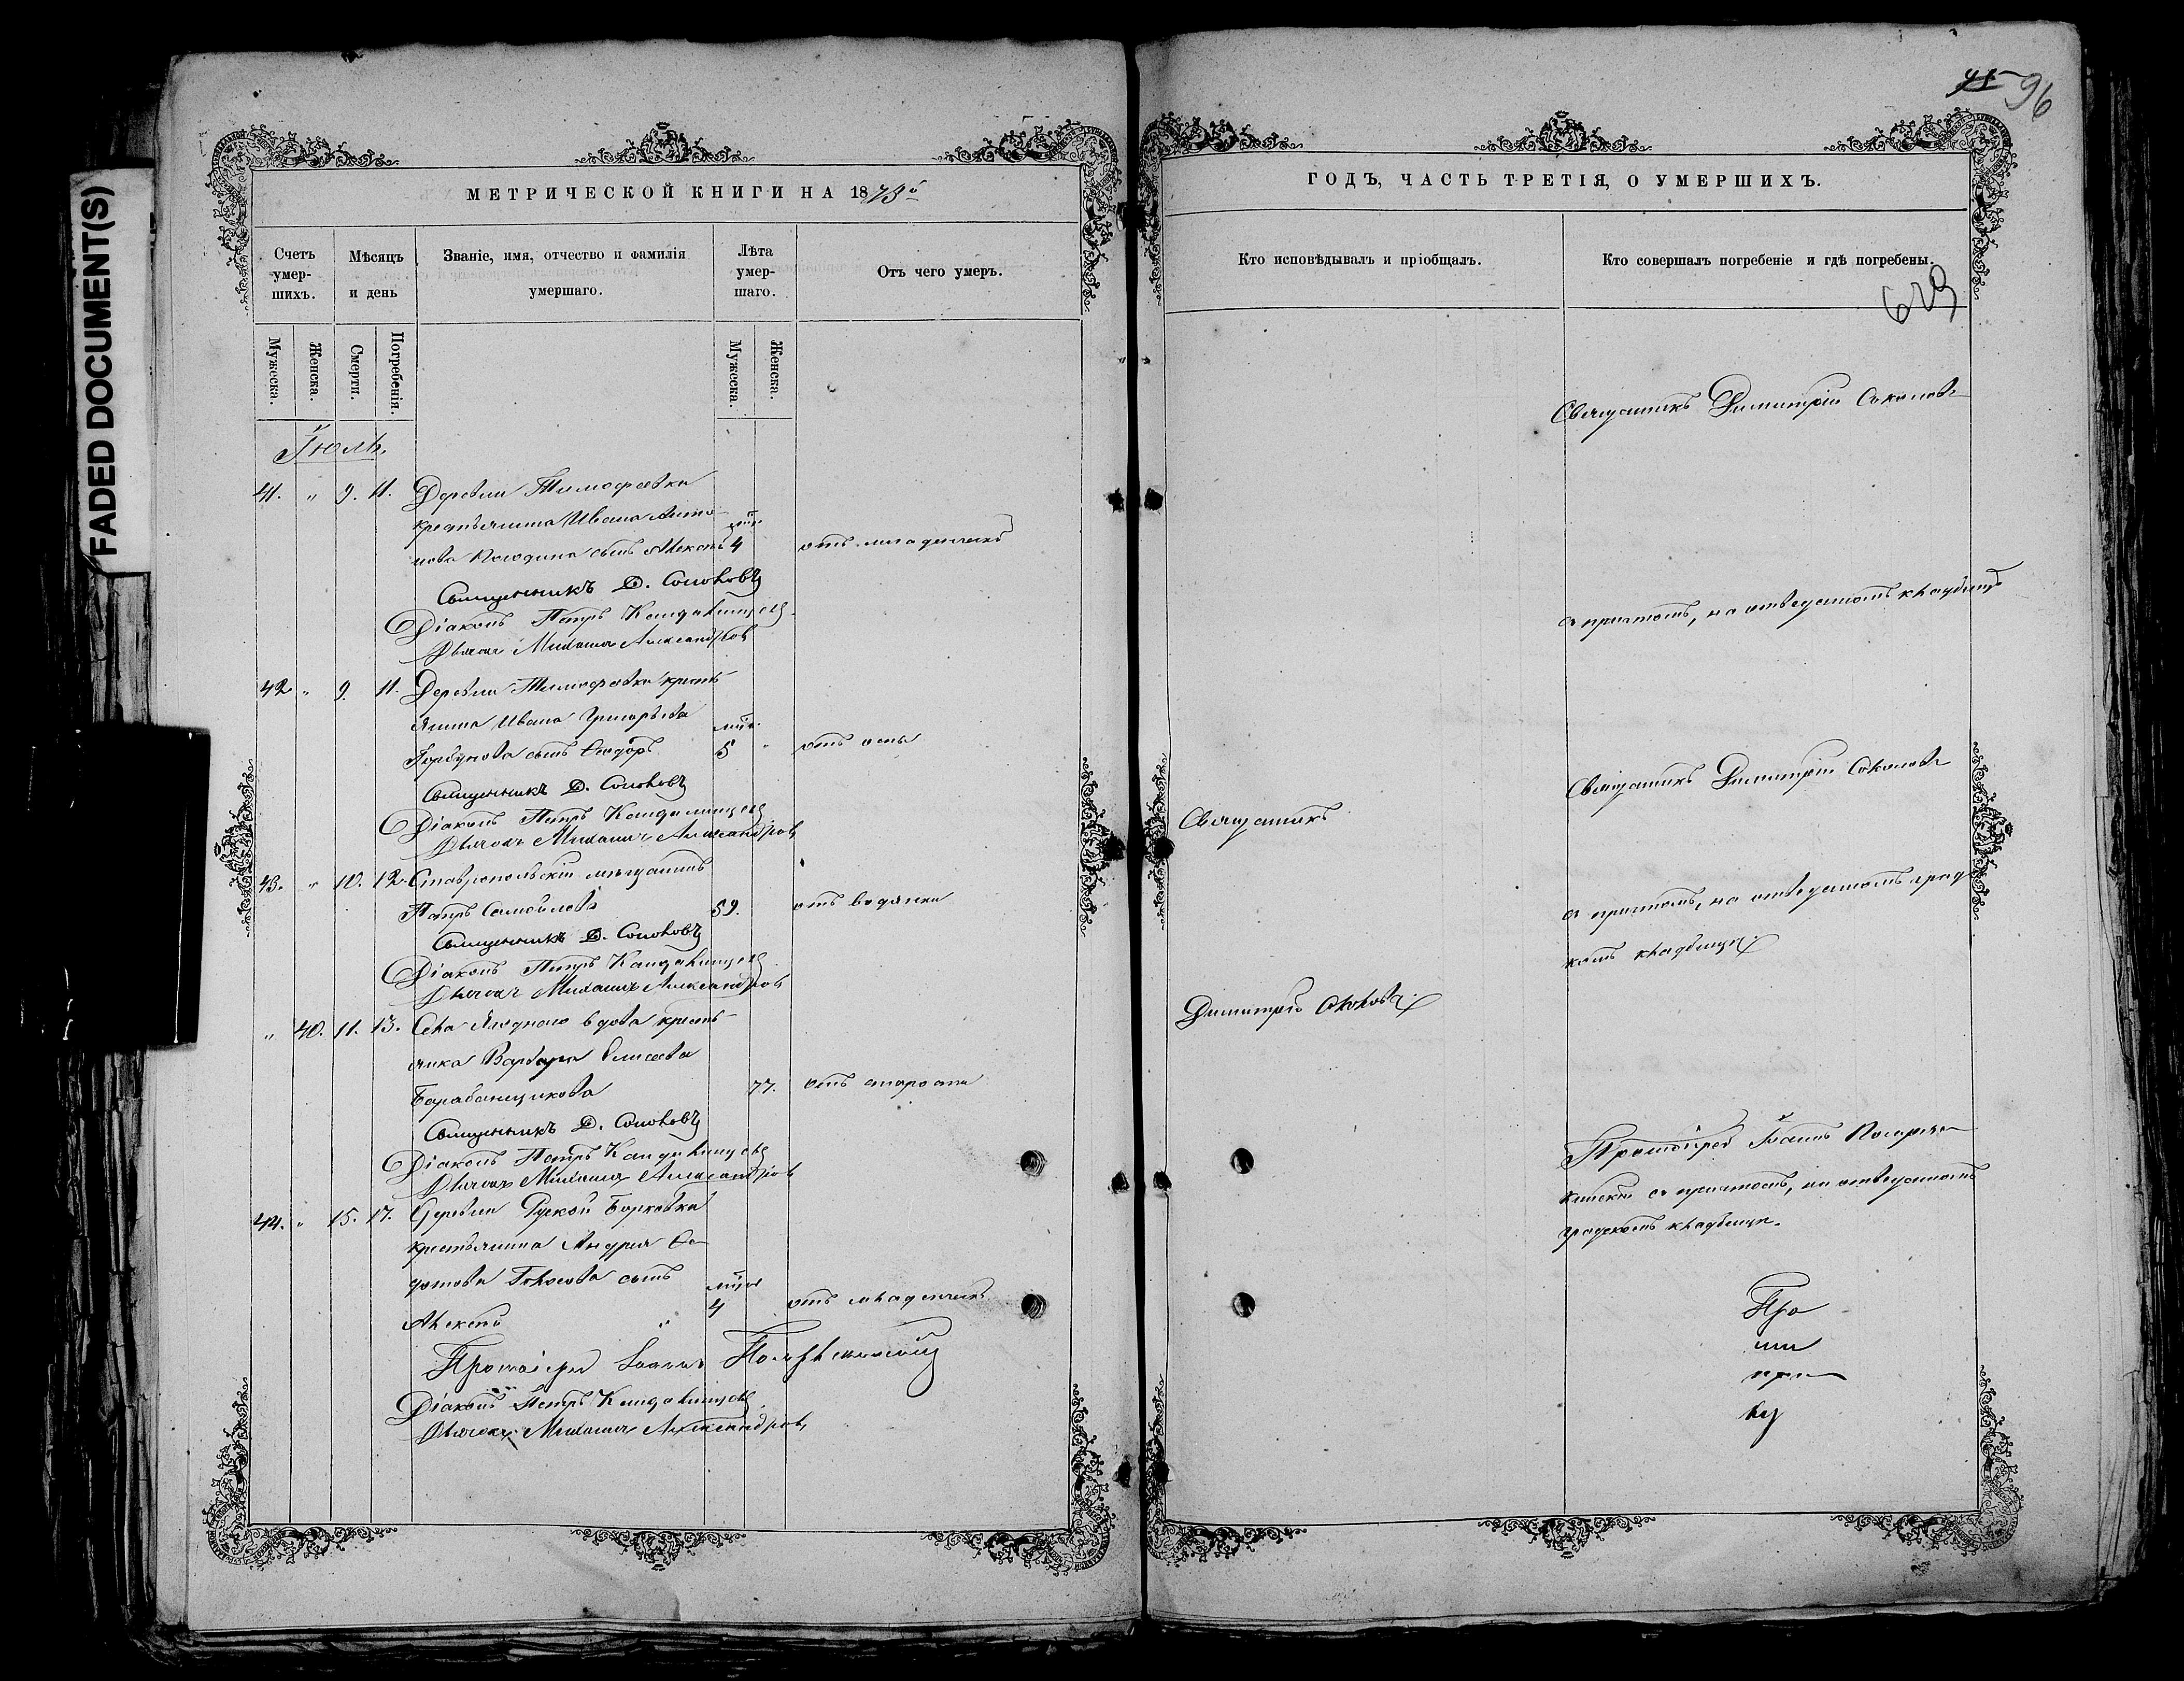 FADED DOCUMENT(S)
МЕТРИЧЕСКОЙ КНИГИ НА 1873й
Счетъ умер-шихъ.
Мѣсяцъ и день
Званіе, имя, отчество и фамилія умершаго.
Лѣта умер-шаго.
Отъ чего умеръ.
Мужеска.
Женска.
Смерти.
Погребенія.
Мужеска.
Женска.
Іюль.
41. " 9. 11. Деревни Тимофеевки
крестьянина Ивана Анто-
нова сынъ Алексѣй 4 отъ младенческ
Священникъ Д. Соколовъ
Діаконъ Петръ
Дьячокъ Михаилъ Александровъ
42 " 9. 11. Деревни Тимофеевки кресть-
янина Ивана Григорьева
Горбунова сынъ Ѳеодоръ 5 " отъ оспы
Священникъ Д. Соколовъ
Діаконъ Петръ
Дьячокъ Михаилъ Александровъ
43. " 10. 12. Ставропольскій мѣщанинъ
Петръ Самойловъ 59. отъ водянки
Священникъ Д. Соколовъ
Діаконъ Петръ
Дьячокъ Михаилъ Александровъ
" 40. 11. 13. Села Ягоднаго вдова кресть-
янка Варвара Елисеева
Барабанщикова 77. отъ старости
Священникъ Д. Соколовъ
Діаконъ Петръ
Дьячокъ Михаилъ Александровъ
44. " 15. 17. Деревни Русской Борковки
крестьянина Андрея Ѳе-
дотова сынъ
Алексѣй " 4 отъ младенческ
Протоіерей Іоаннъ
Діаконъ Петръ
Дьячокъ Михаилъ Александровъ
96
ГОДЪ, ЧАСТЬ ТРЕТІЯ, О УМЕРШИХЪ.
Кто исповѣдывалъ и пріобщалъ.
Кто совершалъ погребеніе и гдѣ погребены.
629
Священникъ Димитрій Соколовъ
съ причтомъ, на отведенномъ кладбищѣ
Священникъ Димитрій Соколовъ
Священникъ
съ причтомъ, на отведенномъ град-
комъ кладбищѣ.
Димитрій Соколовъ.
Протоіерей Іоаннъ
съ причтомъ, на отведенномъ
градскомъ кладбищѣ.
Про